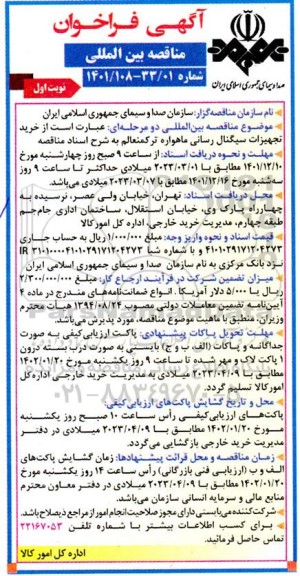 آگهی فراخوان
مناقصه بین المللی
شماره ۱۴۰۱/۱۰۸-۳۳/۰۱
صدا و سیمای جمهوری اسلامی ایران
نوبت اول
نام سازمان مناقصه‌گزار: سازمان صدا و سیمای جمهوری اسلامی ایران
موضوع مناقصه بین‌المللی دو مرحله‌ای: عبارت است از خرید
تجهیزات سیگنال رسانی ماهواره ترکمنعالم به شرح اسناد مناقصه
مهلت و نحوه دریافت اسناد: از ساعت ۹ صبح روز چهارشنبه مورخ
۱۴۰۱/۱۲/۱۰ مطابق با ۲۰۲۳/۰۳/۰۱ میلادی حداکثر تا ساعت ۹ روز
سه‌شنبه مورخ ۱۴۰۱/۱۲/۱۶ مطابق با ۲۰۲۳/۰۳/۰۷ میلادی می‌باشد.
محل دریافت اسناد: تهران، خیابان ولی عصر، نرسیده به
چهارراه پارک وی، خیابان استقلال، ساختمان اداری جام‌جم
طبقه چهارم، مدیریت خرید خارجی اداره کل امور کالا
قیمت اسناد و نحوه واریز وجه: مبلغ ۱/۰۰۰/۰۰۰ ریال به حساب جاری
نزد بانک مرکزی به نام سازمان صدا و سیمای جمهوری اسلامی ایران
میزان تضمین شرکت در فرآیند ارجاع کار: مبلغ ۲/۳۰۰/۰۰۰/۰۰۰
ریال یا ۵۰۰۰ دلار آمریکا. انواع ضمانت‌نامه‌های مندرج در ماده ۴
آیین‌نامه تضمین معاملات دولتی مصوب ۱۳۹۴/۰۸/۲۴ هیئت محترم
وزیران، منطبق با ماهیت موضوع مناقصه، مورد پذیرش می‌باشد.
مهلت تحویل پاکات پیشنهادی: پاکت ارزیابی کیفی به صورت
جداگانه و پاکات (الف، ب و ج) بایستی به صورت درب بسته درون
۱ پاکت لاک و مهر شده تا ساعت ۹ روز یکشنبه مورخ ۱۴۰۲/۰۱/۲۰
مطابق با ۲۰۲۳/۰۴/۰۹ میلادی به مدیریت خرید خارجی اداره کل
امور کالا تسلیم گردد.
محل و تاریخ گشایش پاکت‌های ارزیابی کیفی:
پاکت‌های ارزیابی کیفی رأس ساعت ۱۰ صبح روز یکشنبه
مورخ ۱۴۰۲/۰۱/۲۰ مطابق با ۲۰۲۳/۰۴/۰۹ میلادی در دفتر
مدیریت خرید خارجی بازگشایی می‌گردد.
زمان مناقصه و محل قرائت پیشنهادها: زمان گشایش پاکت‌های
الف و ب (ارزیابی فنی بازرگانی) رأس ساعت ۱۴ روز یکشنبه مورخ
۱۴۰۲/۰۱/۲۰ مطابق با ۲۰۲۳/۰۴/۰۹ میلادی در دفتر معاون محترم
منابع مالی و سرمایه انسانی سازمان می‌باشد.
شرکت‌کننده می‌بایستی دارای مجوز صلاحیت انجام امور از مراجع ذیصلاح باشد.
برای کسب اطلاعات بیشتر با شماره تلفن ۲۲۱۶۷۰۵۳
تماس حاصل فرمائید.
اداره کل امور کالا